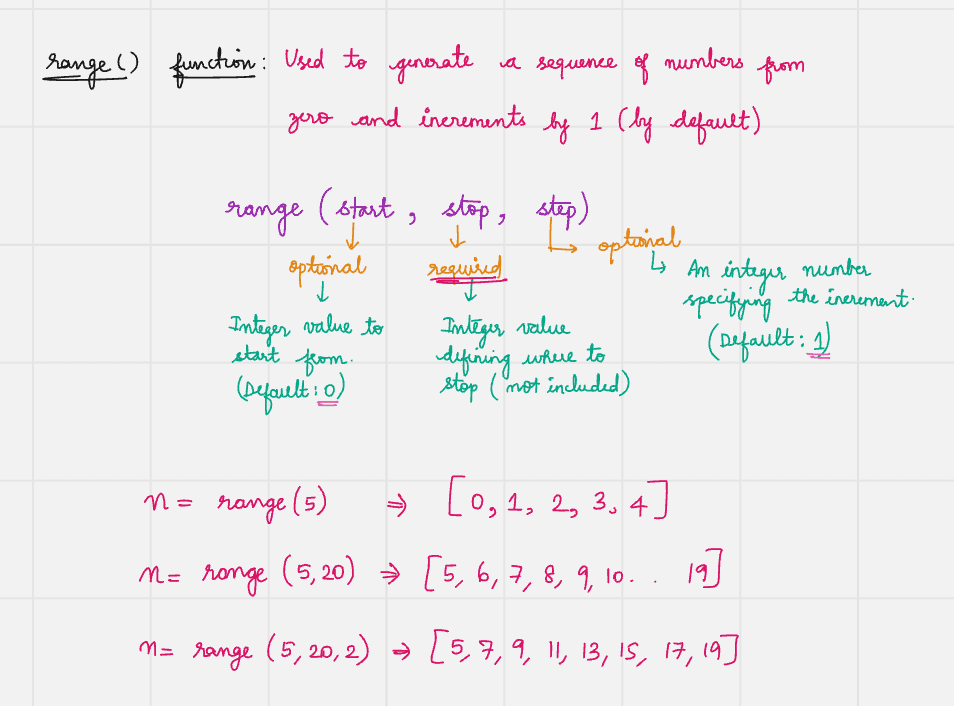 range() function: Used to generate a sequence of numbers from
zero and increments by 1 (by default)
range (start, stop, step)
optional
required
optional
Integer value to
start from.
(Default: 0)
Integer value
defining where to
stop (not included)
An integer number
specifying the increment.
(Default: 1)
n = range(5) ⇒ [0, 1, 2, 3, 4]
n = range (5,20) ⇒ [5, 6, 7, 8, 9, 10. . 19]
n = range (5,20,2) ⇒ [5, 7, 9, 11, 13, 15, 17, 19]